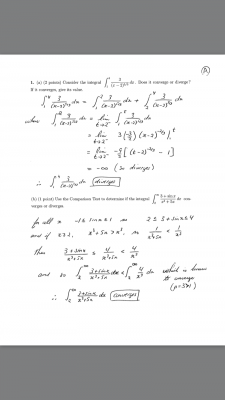 1. (a) (2 points) Consider the integral ∫₁⁴ 3/(x − 2)^(5/3) dx. Does it converge or diverge?
If it converges, give its value.
∫₁⁴ 3/(x-2)^(5/3) dx = ∫₁² 3/(x-2)^(5/3) dx + ∫₂⁴ 3/(x-2)^(5/3) dx
where
= lim t→2⁻
= -∞ (so diverges)
∴ ∫₁⁴ 3/(x-2)^(5/3) dx diverges
(b) (1 point) Use the Comparison Test to determine if the integral ∫₂^∞ (3 + sin x)/(x³ + 5x) dx con-
verges or diverges.
for all x -1 ≤ sinx ≤ 1 so 2 ≤ 3 + sinx ≤ 4
and if x≥1, x³+5x > x³, so 1/(x³+5x) < 1/x³
Thus (3+sinx)/(x³+5x) ≤ 4/(x³+5x) < 4/x³
and so ∫₂^∞ (3+sinx)/(x³+5x) dx < ∫₂^∞ 4/x³ dx which is known
to converge
(p=3>1)
∴ ∫₂^∞ (3+sinx)/(x³+5x) dx converges